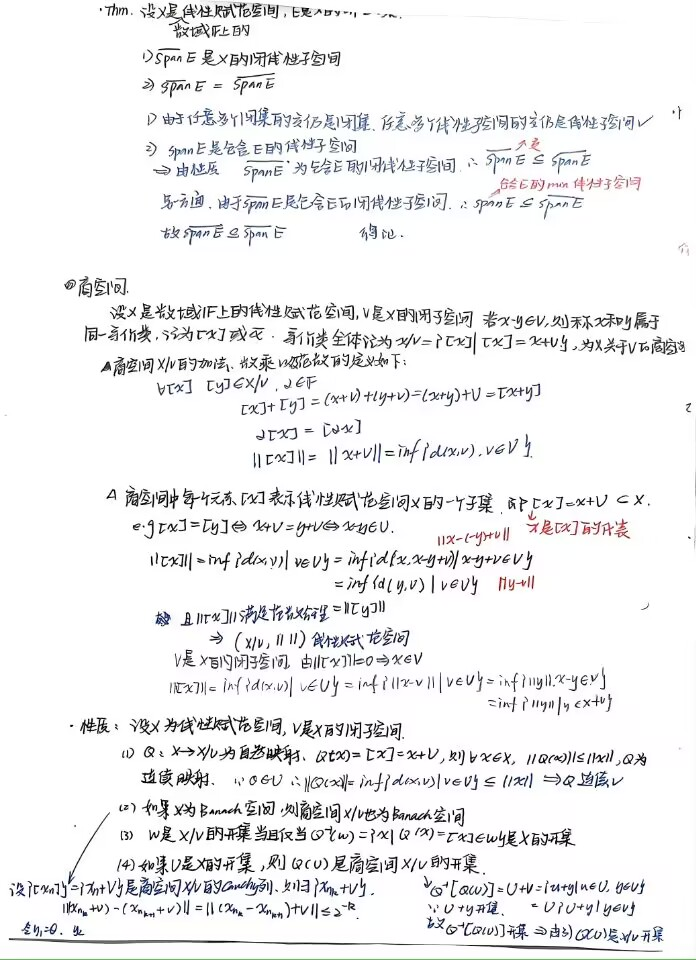 ·Thm. 设X是线性赋范空间, E是X的
数域F上的
1) span E 是X的闭线性子空间
2) span E = span E
1) 由于任意多个闭集的交仍是闭集, 任意多个线性子空间的交仍是线性子空间✓
2) span E是包含E的线性子空间
⇒ 由性质 span E 为包含E的闭线性子空间. ∴ span E ⊆ span E
包含E的min 线性子空间
另方面, 由于span E是包含E的闭线性子空间. ∴ span E ⊆ span E
故 span E ⊆ span E 得证.
商空间.
设X是数域F上的线性赋范空间, V是X的闭子空间 若x-y∈V, 则称x和y属于
同一等价类, 记为[x]或x̄. 等价类全体记为X/V={[x]| [x]=x+V}, 为X关于V的商空间
△商空间X/V的加法、数乘以及范数的定义如下:
∀[x] [y]∈X/V, α∈F
[x]+[y]=(x+V)+(y+V)=(x+y)+V=[x+y]
α[x] = [αx]
||[x]||= ||x+V||=inf{d(x,v), v∈V}.
△ 商空间中每个元素[x]表示线性赋范空间X的一个子集, 即[x]=x+V ⊂ X.
e.g [x]=[y]⇔x+V=y+V⇔x-y∈V. ||x-(x-y)+v|| 是[x]的代表
||[x]||=inf{d(x,v)| v∈V}=inf{d(x,x-y+v)|x-y+v∈V}
=inf{d(y,v) | v∈V} ||y-v||
=||[y]||
故 且||[x]||满足范数公理
⇒ (X/V, || ||) 线性赋范空间
V是X的闭子空间, 由||[x]||=0⇒x∈V
||[x]||=inf{d(x,v)| v∈V}=inf{||x-v|| | v∈V}=inf{||y||, x-y∈V}
=inf{||y|| |y∈x+V}
·性质: 设X为线性赋范空间, V是X的闭子空间.
(1) Q: X→X/V为自然映射, Q(x)=[x]=x+V, 则∀x∈X, ||Q(x)||≤||x||, Q为
连续映射. ∵0∈V ∴||Q(x)||=inf{d(x,v)|v∈V}≤||x|| ⇒Q连续✓
(2) 如果X为Banach空间, 则商空间X/V也为Banach空间
(3) W是X/V的开集当且仅当Q⁻¹(W)={x| Q(x)=[x]∈W}是X的开集
(4) 如果U是X的开集, 则Q(U)是商空间X/V的开集.
设{[xn]}={xn+V}是商空间X/V的Cauchy列, 则∃{xnₖ+V},
||(xnₖ+V)-(xnₖ₊₁+V)||=||(xnₖ-xnₖ₊₁)+V||≤2⁻ᵏ
令y₁=0,
Q⁻¹[Q(U)]=U+V={u+y|u∈U, y∈V}
∵U+y开集. =∪{U+y|y∈V}
故Q⁻¹[Q(U)]开集⇒由(3) Q(U)是X/V开集